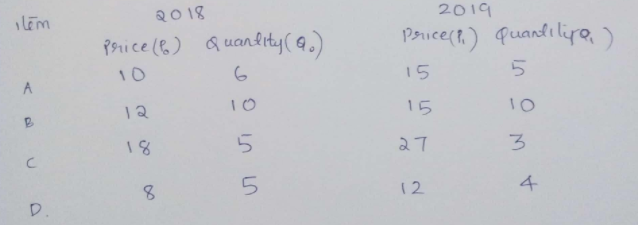 item 2018 2019
Price(P₀) Quantity(Q₀) Price(P₁) Quantity(Q₁)
A 10 6 15 5
B 12 10 15 10
C 18 5 27 3
D. 8 5 12 4